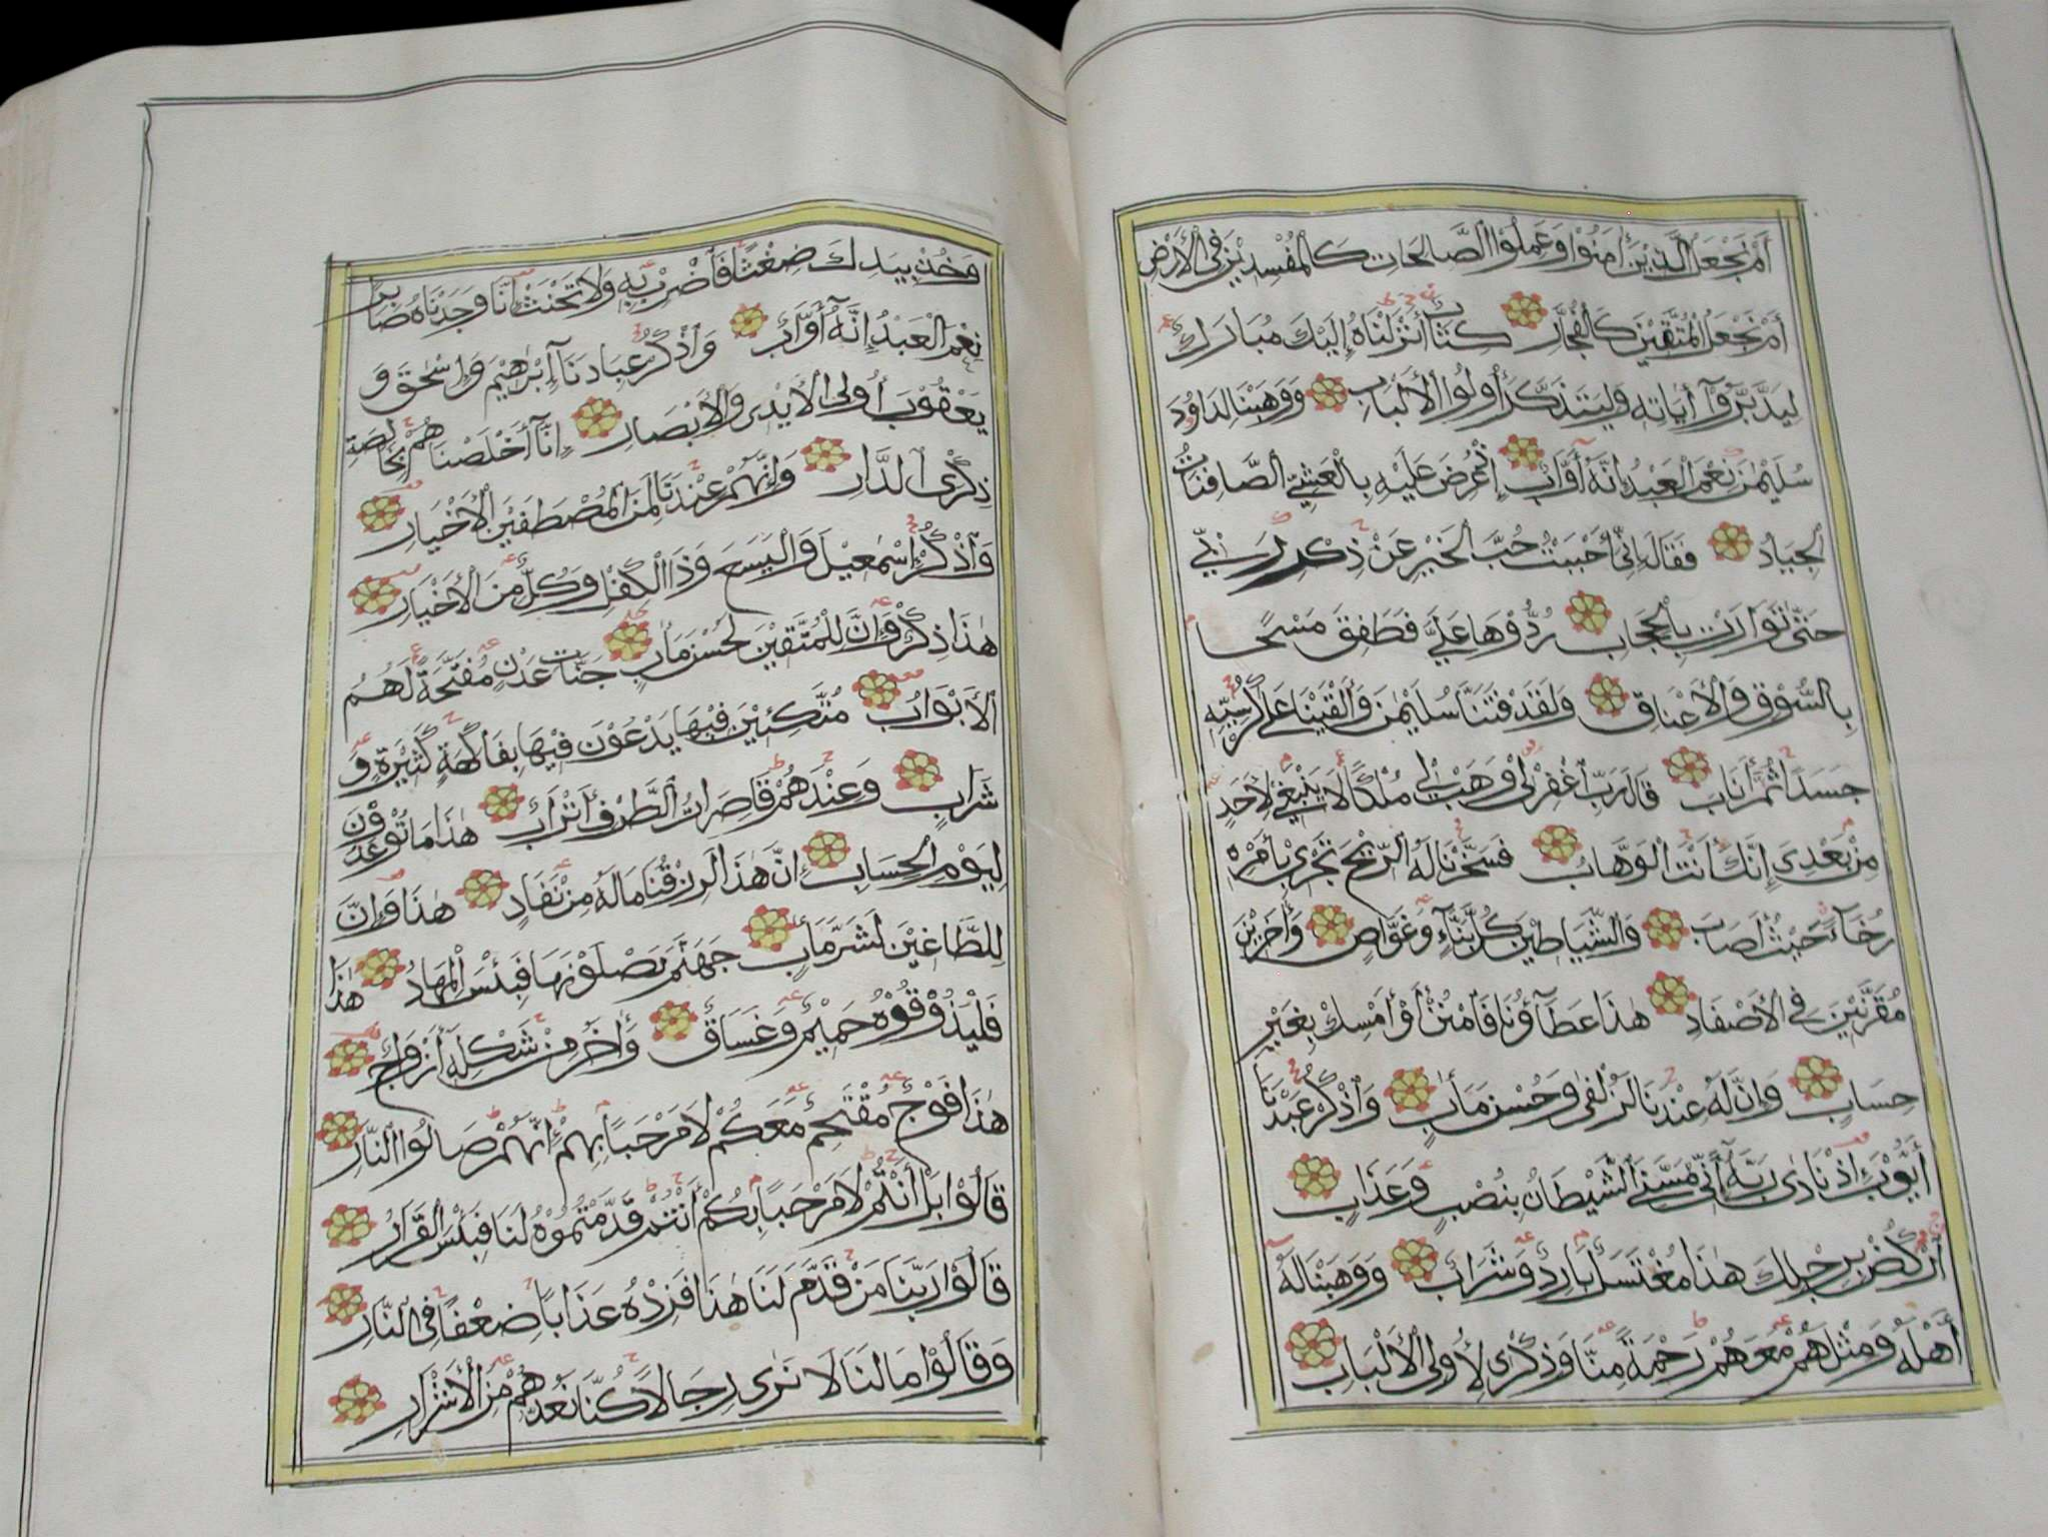 أَمْ نَجْعَلُ الَّذِيْنَ أٰمَنُوْا وَعَمِلُوْا الصَّالِحَاتِ كَالْمُفْسِدِيْنَ فِى الْأَرْضِ
أَمْ نَجْعَلُ الْمُتَّقِيْنَ كَالْفُجَّارِ كِتَابٌ أَنْزَلْنَاهُ إِلَيْكَ مُبَارَكٌ
لِيَدَّبَّرُوْآ أٰيَاتِهِ وَلِيَتَذَكَّرَ أُولُوا الْأَلْبَابِ وَوَهَبْنَا لِدَاوُدَ
سُلَيْمٰنَ نِعْمَ الْعَبْدُ إِنَّهُٓ أَوَّابٌ إِذْ عُرِضَ عَلَيْهِ بِالْعَشِيِّ الصَّافِنَاتُ
الْجِيَادُ فَقَالَ إِنِّيْٓ أَحْبَبْتُ حُبَّ الْخَيْرِ عَنْ ذِكْرِ رَبِّيْ
حَتّٰى تَوَارَتْ بِالْحِجَابِ رُدُّوْهَا عَلَيَّ فَطَفِقَ مَسْحًا
بِالسُّوْقِ وَالْأَعْنَاقِ وَلَقَدْ فَتَنَّا سُلَيْمٰنَ وَأَلْقَيْنَا عَلٰى كُرْسِيِّهِ
جَسَدًا ثُمَّ أَنَابَ قَالَ رَبِّ اغْفِرْ لِيْ وَهَبْ لِيْ مُلْكًا لَا يَنْبَغِيْ لِأَحَدٍ
مِنْ بَعْدِيْ إِنَّكَ أَنْتَ الْوَهَّابُ فَسَخَّرْنَا لَهُ الرِّيْحَ تَجْرِيْ بِأَمْرِهِ
رُخَآءً حَيْثُ أَصَابَ وَالشَّيَاطِيْنَ كُلَّ بَنَّآءٍ وَغَوَّاصٍ وَأٰخَرِيْنَ
مُقَرَّنِيْنَ فِى الْأَصْفَادِ هٰذَا عَطَآؤُنَا فَامْنُنْ أَوْ أَمْسِكْ بِغَيْرِ
حِسَابٍ وَإِنَّ لَهُ عِنْدَنَا لَزُلْفٰى وَحُسْنَ مَأٰبٍ وَاذْكُرْ عَبْدَنَآ
أَيُّوْبَ إِذْ نَادٰى رَبَّهُٓ أَنِّيْ مَسَّنِيَ الشَّيْطَانُ بِنُصْبٍ وَعَذَابٍ
ارْكُضْ بِرِجْلِكَ هٰذَا مُغْتَسَلٌ بَارِدٌ وَشَرَابٌ وَوَهَبْنَا لَهُٓ
أَهْلَهُ وَمِثْلَهُمْ مَعَهُمْ رَحْمَةً مِنَّا وَذِكْرٰى لِأُولِى الْأَلْبَابِ
وَخُذْ بِيَدِكَ ضِغْثًا فَاضْرِبْ بِهِ وَلَا تَحْنَثْ إِنَّا وَجَدْنَاهُ صَابِرًا
نِعْمَ الْعَبْدُ إِنَّهُٓ أَوَّابٌ وَاذْكُرْ عِبَادَنَآ إِبْرٰهِيْمَ وَإِسْحٰقَ وَ
يَعْقُوْبَ أُولِى الْأَيْدِيْ وَالْأَبْصَارِ إِنَّآ أَخْلَصْنَاهُمْ بِخَالِصَةٍ
ذِكْرَى الدَّارِ وَإِنَّهُمْ عِنْدَنَا لَمِنَ الْمُصْطَفَيْنَ الْأَخْيَارِ
وَاذْكُرْ إِسْمٰعِيْلَ وَالْيَسَعَ وَذَا الْكِفْلِ وَكُلٌّ مِنَ الْأَخْيَارِ
هٰذَا ذِكْرٌ وَإِنَّ لِلْمُتَّقِيْنَ لَحُسْنَ مَأٰبٍ جَنَّاتِ عَدْنٍ مُفَتَّحَةً لَهُمُ
الْأَبْوَابُ مُتَّكِئِيْنَ فِيْهَا يَدْعُوْنَ فِيْهَا بِفَاكِهَةٍ كَثِيْرَةٍ وَ
شَرَابٍ وَعِنْدَهُمْ قَاصِرَاتُ الطَّرْفِ أَتْرَابٌ هٰذَا مَا تُوْعَدُوْنَ
لِيَوْمِ الْحِسَابِ إِنَّ هٰذَا لَرِزْقُنَا مَا لَهُ مِنْ نَفَادٍ هٰذَا وَإِنَّ
لِلطَّاغِيْنَ لَشَرَّ مَأٰبٍ جَهَنَّمَ يَصْلَوْنَهَا فَبِئْسَ الْمِهَادُ هٰذَا
فَلْيَذُوْقُوْهُ حَمِيْمٌ وَغَسَّاقٌ وَأٰخَرُ مِنْ شَكْلِهِٓ أَزْوَاجٌ
هٰذَا فَوْجٌ مُقْتَحِمٌ مَعَكُمْ لَا مَرْحَبًا بِهِمْ إِنَّهُمْ صَالُوا النَّارِ
قَالُوْا بَلْ أَنْتُمْ لَا مَرْحَبًا بِكُمْ أَنْتُمْ قَدَّمْتُمُوْهُ لَنَا فَبِئْسَ الْقَرَارُ
قَالُوْا رَبَّنَا مَنْ قَدَّمَ لَنَا هٰذَا فَزِدْهُ عَذَابًا ضِعْفًا فِى النَّارِ
وَقَالُوْا مَا لَنَا لَا نَرٰى رِجَالًا كُنَّا نَعُدُّهُمْ مِنَ الْأَشْرَارِ